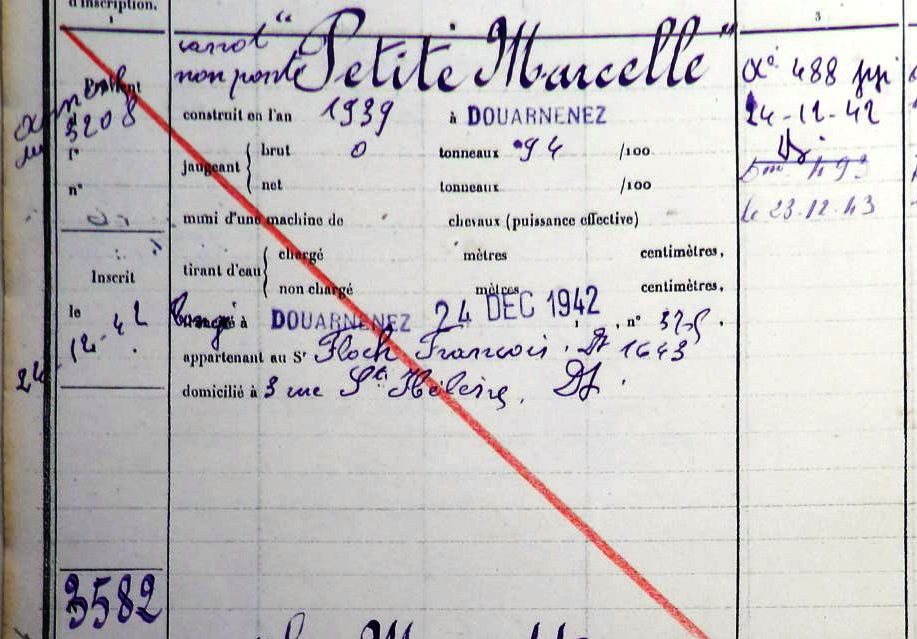 d'inscription.
1
3
canot
non ponté
"Petite Marcelle"
Provient
3208
n°
construit en l'an 1939 à DOUARNENEZ
jaugeant
brut 0 tonneaux 94 /100
net tonneaux /100
muni d'une machine de chevaux (puissance effective)
tirant d'eau
chargé mètres centimètres,
non chargé mètres centimètres,
Inscrit
le
24
12-42
à DOUARNENEZ 24 DEC 1942, n°
appartenant au Sr Floch François. Dz 1643
domicilié à 3 rue Ste Hélène. Dz.
488
24-12-42
le 23.12.43
3582